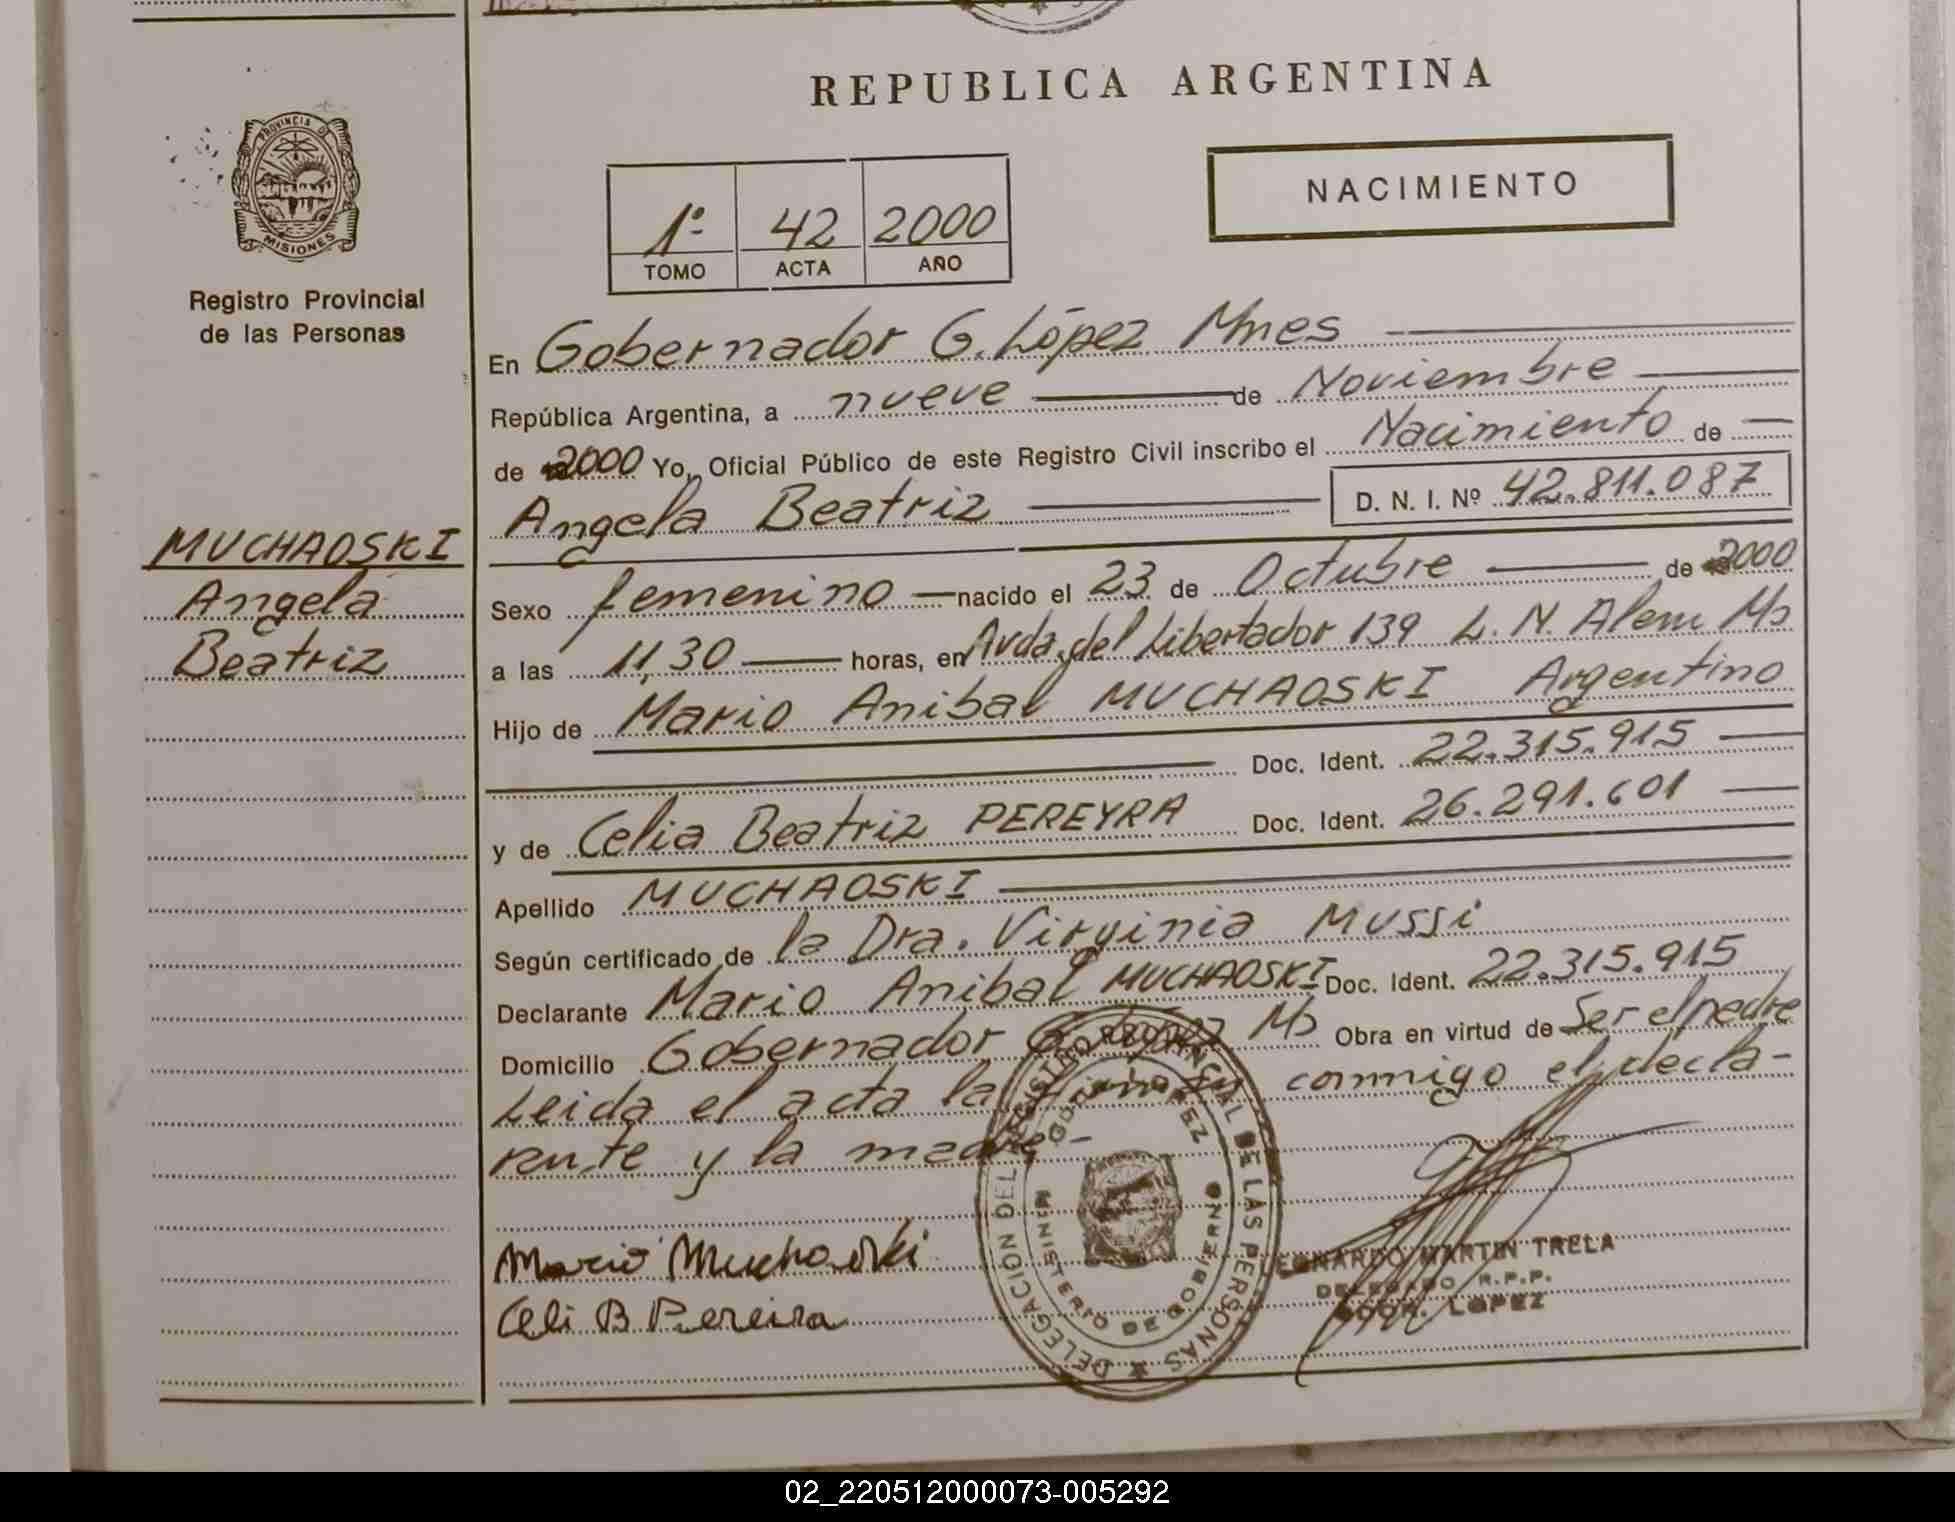 REPUBLICA ARGENTINA
PROVINCIA DE
MISIONES
Registro Provincial
de las Personas
NACIMIENTO
1º 42 2000
TOMO ACTA AÑO
En Gobernador G. López Mnes
República Argentina, a nueve de Noviembre
de 2000 Yo, Oficial Público de este Registro Civil inscribo el Nacimiento de
Angela Beatriz D. N. I. Nº 42.811.087
MUCHAOSKI
Angela
Beatriz
Sexo femenino nacido el 23 de Octubre de 2000
a las 11,30 horas, en Avda. del Libertador 139 L. N. Alem Ms
Hijo de Mario Anibal MUCHAOSKI Argentino
Doc. Ident. 22.315.915
y de Celia Beatriz PEREYRA Doc. Ident. 26.291.601
Apellido MUCHAOSKI
Según certificado de la Dra. Virginia MUSSi
Declarante Mario Anibal MUCHAOSKI Doc. Ident. 22.315.915
Domicilio Gobernador López Ms Obra en virtud de Ser el padre
Leida el acta la firman conmigo el decla-
rante y la madre-
Mario Muchaoski
Celi B Pereira
DELEGACION DEL REGISTRO PROVINCIAL DE LAS PERSONAS
MINISTERIO DE GOBIERNO
LEONARDO MARTIN TRELA
DELEGADO R.P.P.
GDOR. LOPEZ
02_220512000073-005292